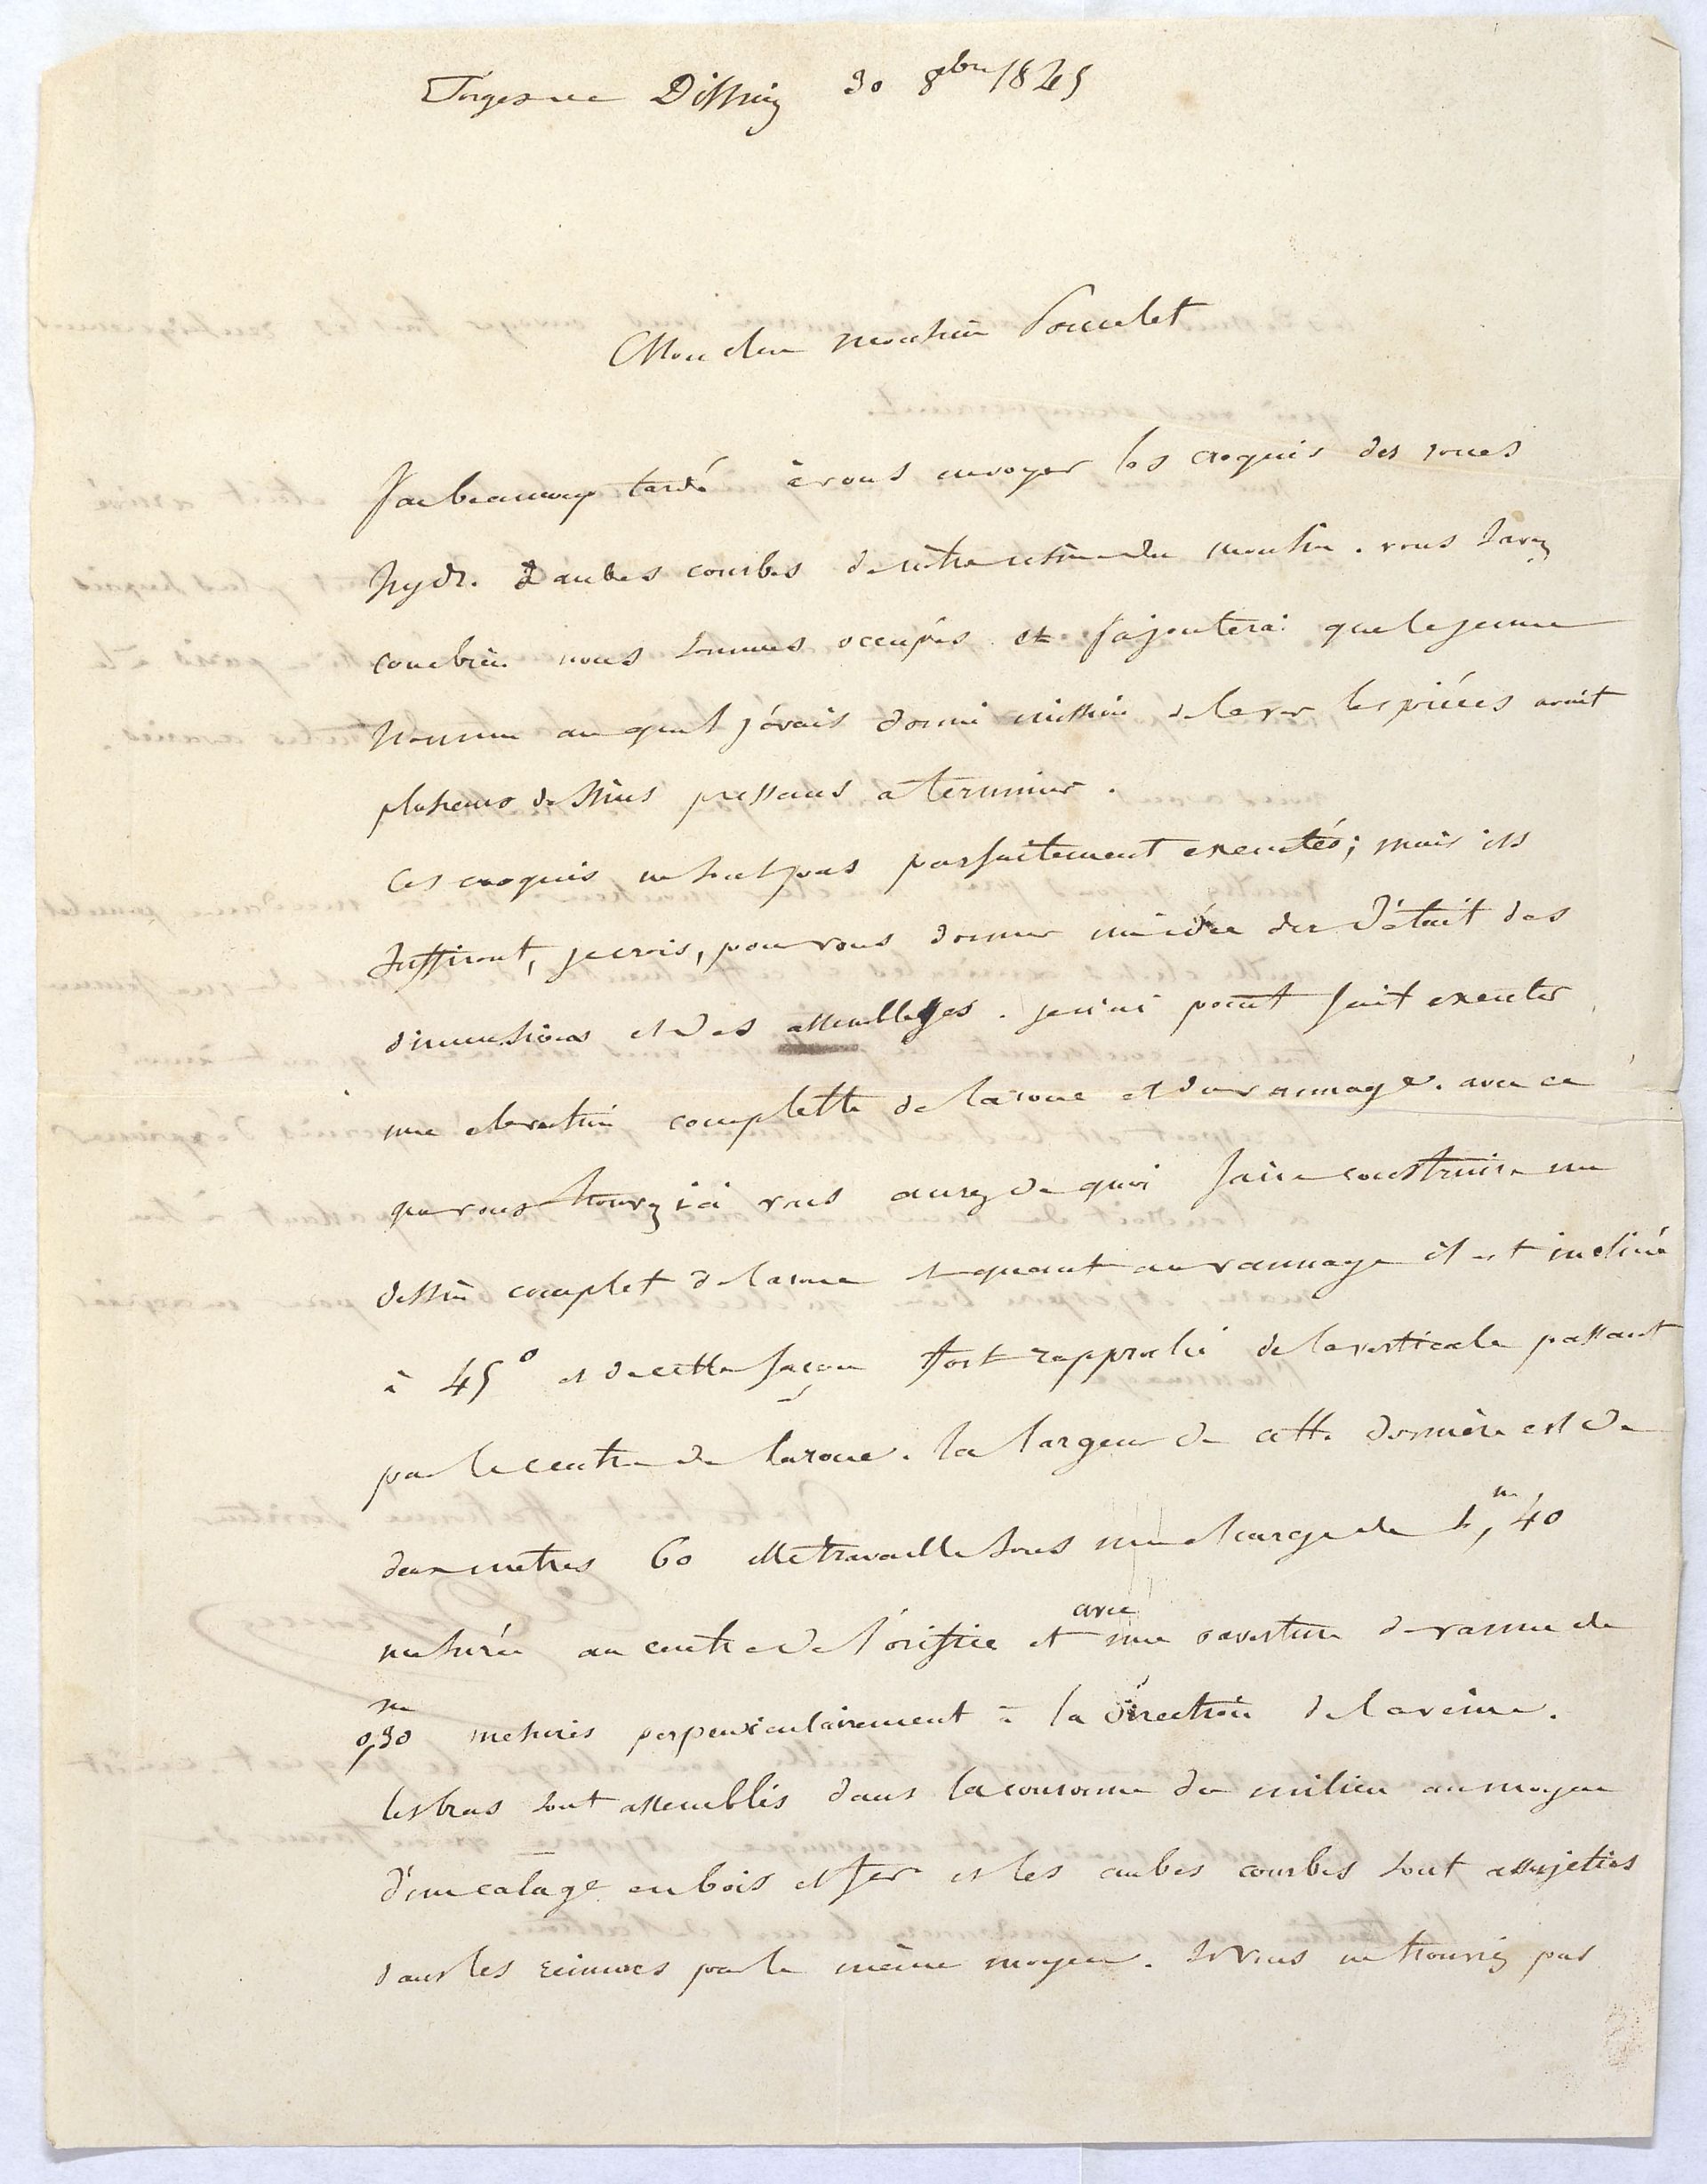 Forges de Dilling 30 8bre 1845
Mon cher monsieur Poncelet
J'ai beaucoup tardé à vous envoyer les croquis des roues
hydr. à aubes courbes de nôtre usine du moulin. vous savez
combien nous sommes occupés et j'ajouterai que le jeune
homme au quel j'avais donné mission de lever les pièces avait
plusieurs dessins pressans à terminer.
Ces croquis ne sont pas parfaitement executés; mais ils
suffiront, je crois, pour vous donner une idée du détail des
dimensions et des assemblages. je n'ai point fait executer
une élévation complette de la roue et du vannage. avec ce
que vous trouvez ici vous aurez de quoi faire construire un
dessin complet de la roue et quant au vannage il est incliné
à 45° et de cette façon fort rapproché de la verticale passant
par le centre de la roue. la largeur de cette dernière est de
deux mètres 60 elle travaille sous une charge de 1,m40
mesurée au centre de l'orifice et avec une ouverture de vanne de
0,m30 mesurés perpendiculairement à la direction de la veine.
les bras sont assemblés dans la couronne du milieu au moyen
d'un calage en bois et fer et les aubes courbes sont assujeties
dans les rainures par le même moyen. si vous ne trouviez pas